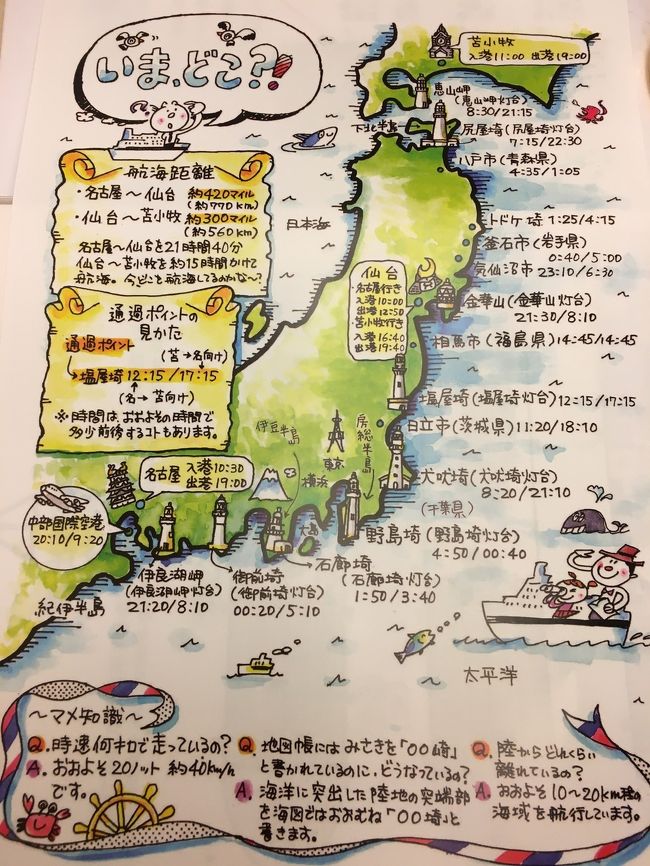 いま、どこ?!
苫小牧
入港11:00 出港19:00
恵山岬
(恵山岬灯台)
8:30/21:15
下北半島
尻屋埼(尻屋埼灯台)
7:15/22:30
八戸市(青森県)
4:35/1:05
トドケ埼 1:25/4:15
釜石市(岩手県)
0:40/5:00
気仙沼市 23:10/6:30
金華山(金華山灯台)
21:30/8:10
相馬市(福島県)14:45/14:45
塩屋埼(塩屋埼灯台)12:15/17:15
日立市(茨城県)11:20/18:10
犬吠埼(犬吠埼灯台)
8:20/21:10
(千葉県)
野島埼(野島埼灯台)
4:50/00:40
石廊埼
(石廊埼灯台)
1:50/3:40
御前埼
(御前埼灯台)
00:20/5:10
伊良湖岬
(伊良湖岬灯台)
21:20/8:10
航海距離
・名古屋～仙台 約420マイル
(約770km)
・仙台～苫小牧 約300マイル
(約560km)
名古屋～仙台を21時間40分
仙台～苫小牧を約15時間かけて
航海。今どこを航海してるのかな～?
日本海
通過ポイントの
見かた
通過ポイント
(苫→名向け)
→塩屋埼 12:15/17:15
(名→苫向け)
※時間は、おおよその時間で
多少前後するコトもあります。
仙台
名古屋行き
入港10:00
出港12:50
苫小牧行き
入港16:40
出港19:40
伊豆半島
東京
横浜
房総半島
大島
名古屋 入港10:30
出港19:00
中部国際空港
20:10/9:20
紀伊半島
太平洋
～マメ知識～
Q.時速何キロで走っているの?
A.おおよそ20ノット 約40km/h
です。
Q.地図帳にはみさきを「〇〇崎」
と書かれているのに、どうなっているの?
A.海洋に突出した陸地の突端部
を海図ではおおむね「〇〇埼」と
書きます。
Q.陸からどんくらい
離れているの?
A.おおよそ10～20km程の
海域を航行しています。